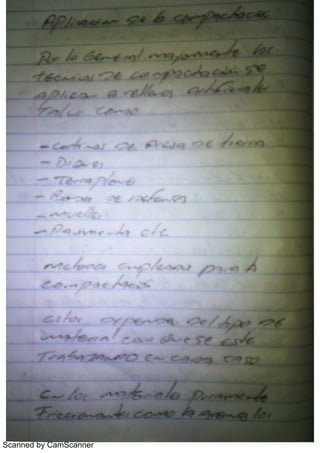 Aplicacion de la compactacion
Por lo General mayormente las
tecnicas de compactación se
aplican a rellenos artificiales
Tales como
- cortinas de de tierra
- Diques
- Terraplenes
- de defensas
- muelles
- Pavimentos etc.
metodos empleados para la
compactación
estos dependen del tipo de
material con que se este
Trabajando en cada caso
En los materiales puramente
Friccionantes como la arena los
Scanned by CamScanner